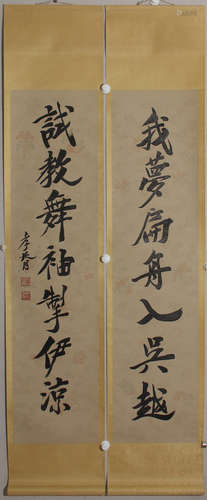 我夢扁舟入吳越
試教舞袖掣伊涼